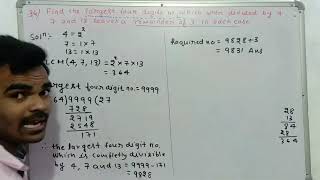 34) Find the largest four digits no. which when divided by 4,
7 and 13 leaves a remainder of 3 in each case
Soln: 4 = 2²
7 = 1×7
13 = 1×13
LCM (4, 7, 13) = 2² × 7 × 13
= 364
largest four digit no. = 9999
364)9999(27
728
2719
2548
171
∴ the largest four digit no.
which is completly divisible
by 4, 7 and 13 = 9999-171
= 9828
Required no = 9828+3
= 9831 Ans
28
13
84
28
364